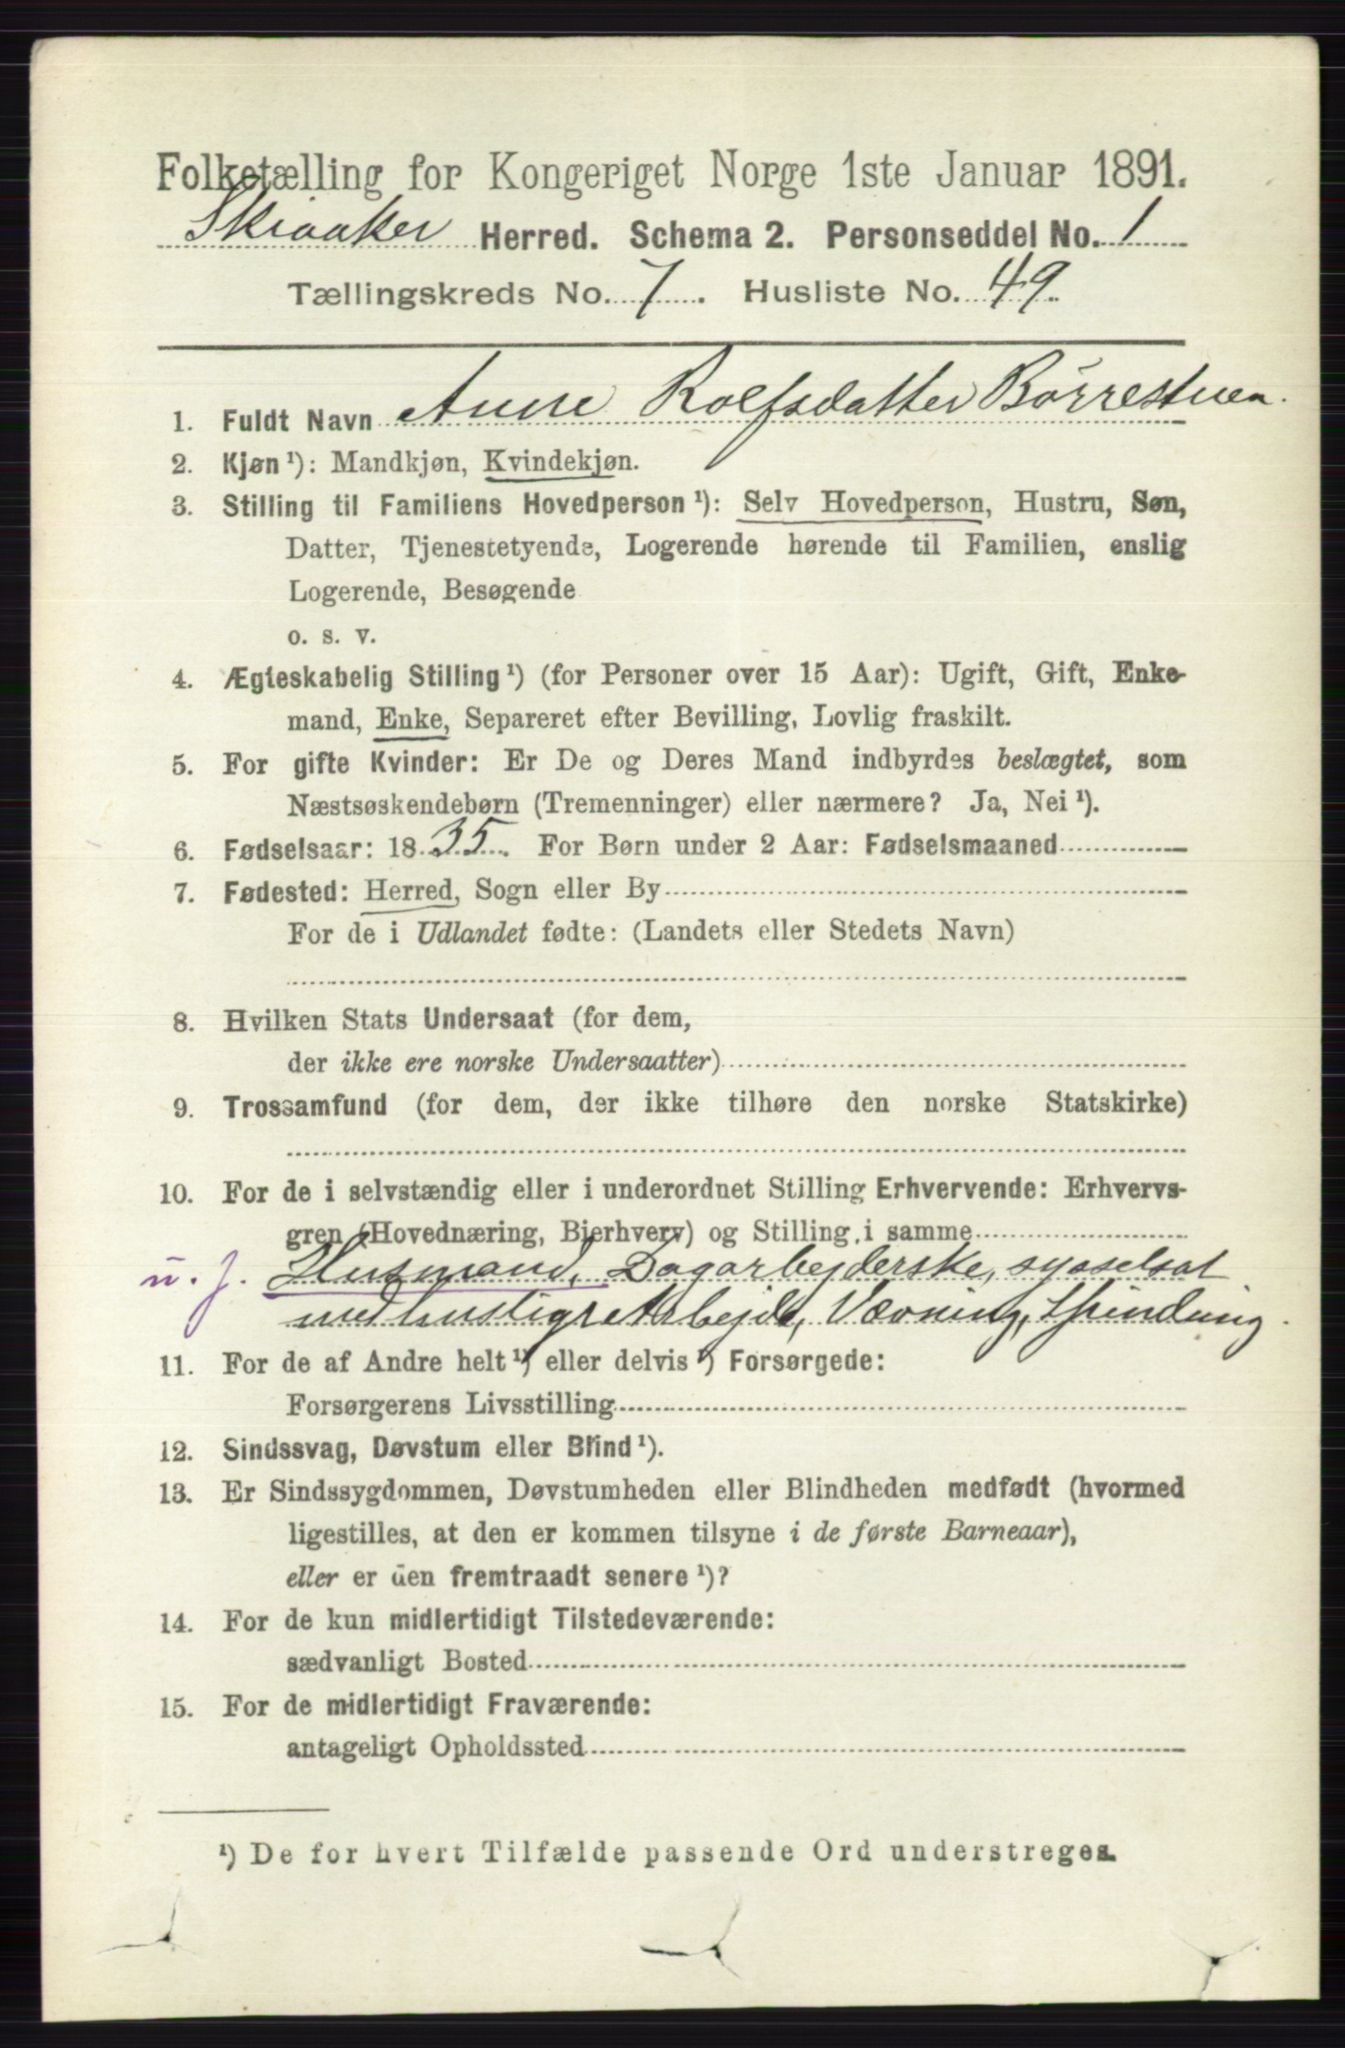 Folketælling for Kongeriget Norge 1ste Januar 1891.
Skiaaker Herred. Schema 2. Personseddel No. 1
Tællingskreds No. 7. Husliste No. 49
1. Fuldt Navn Anne Rolfsdatter Börrestuen.
2. Kjøn ¹): Mandkjøn, Kvindekjøn.
3. Stilling til Familiens Hovedperson ¹): Selv Hovedperson, Hustru, Søn,
Datter, Tjenestetyende, Logerende hørende til Familien, enslig
Logerende, Besøgende
o. s. v.
4. Ægteskabelig Stilling ¹) (for Personer over 15 Aar): Ugift, Gift, Enke-
mand, Enke, Separeret efter Bevilling, Lovlig fraskilt.
5. For gifte Kvinder: Er De og Deres Mand indbyrdes beslægtet, som
Næstsøskendebørn (Tremenninger) eller nærmere? Ja, Nei ¹).
6. Fødselsaar: 1835. For Børn under 2 Aar: Fødselsmaaned
7. Fødested: Herred, Sogn eller By
For de i Udlandet fødte: (Landets eller Stedets Navn)
8. Hvilken Stats Undersaat (for dem,
der ikke ere norske Undersaatter)
9. Trossamfund (for dem, der ikke tilhøre den norske Statskirke)
10. For de i selvstændig eller i underordnet Stilling Erhvervende: Erhvervs-
gren (Hovednæring, Bierhverv) og Stilling i samme
u. j. Husmand, Dagarbejderske, sysselsat
med huslige Arbejde, Vævning, Spinding.
11. For de af Andre helt ¹) eller delvis ¹) Forsørgede:
Forsørgerens Livsstilling
12. Sindssvag, Døvstum eller Blind ¹).
13. Er Sindssygdommen, Døvstumheden eller Blindheden medfødt (hvormed
ligestilles, at den er kommen tilsyne i de første Barneaar),
eller er den fremtraadt senere ¹)?
14. For de kun midlertidigt Tilstedeværende:
sædvanligt Bosted
15. For de midlertidigt Fraværende:
antageligt Opholdssted
¹) De for hvert Tilfælde passende Ord understreges.